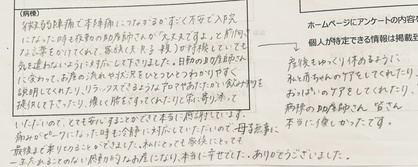 (病棟)
微弱陣痛で本陣痛につながるかすごく不安で入院
になった時も夜勤の助産師さんが「大丈夫ですよ」と前向き
な言葉をかけてくれ、家族(夫、子、親)が待機していても
気を遣わないようにして下さいました。日勤の助産師さん
に変わって、お産の流れや状況をひとつひとつわかりやすく
説明してくれたり、リラックスできるようなアロマやあたたかい飲み物を
提供して下さったり、優しく腰をさすってくれたりと常に寄り添って
いただいので、とても安心することができて本当に感謝しています。
痛みがピークになった時も冷静に対応していただいので、母子無事に
最後まで乗りきることができました。私にとっても家族にとっても
一生忘れることのない感動的なお産になり、本当に幸せでした。ありがとうございました。
ホームページにアンケートの内容
個人が特定できる情報は掲載
産後もゆっくり休めるように
私と赤ちゃんのケアをしてくれたり、
おっぱいのケアをしてくれたり、
病棟の助産師さん 皆さん
本当に優しかったです。